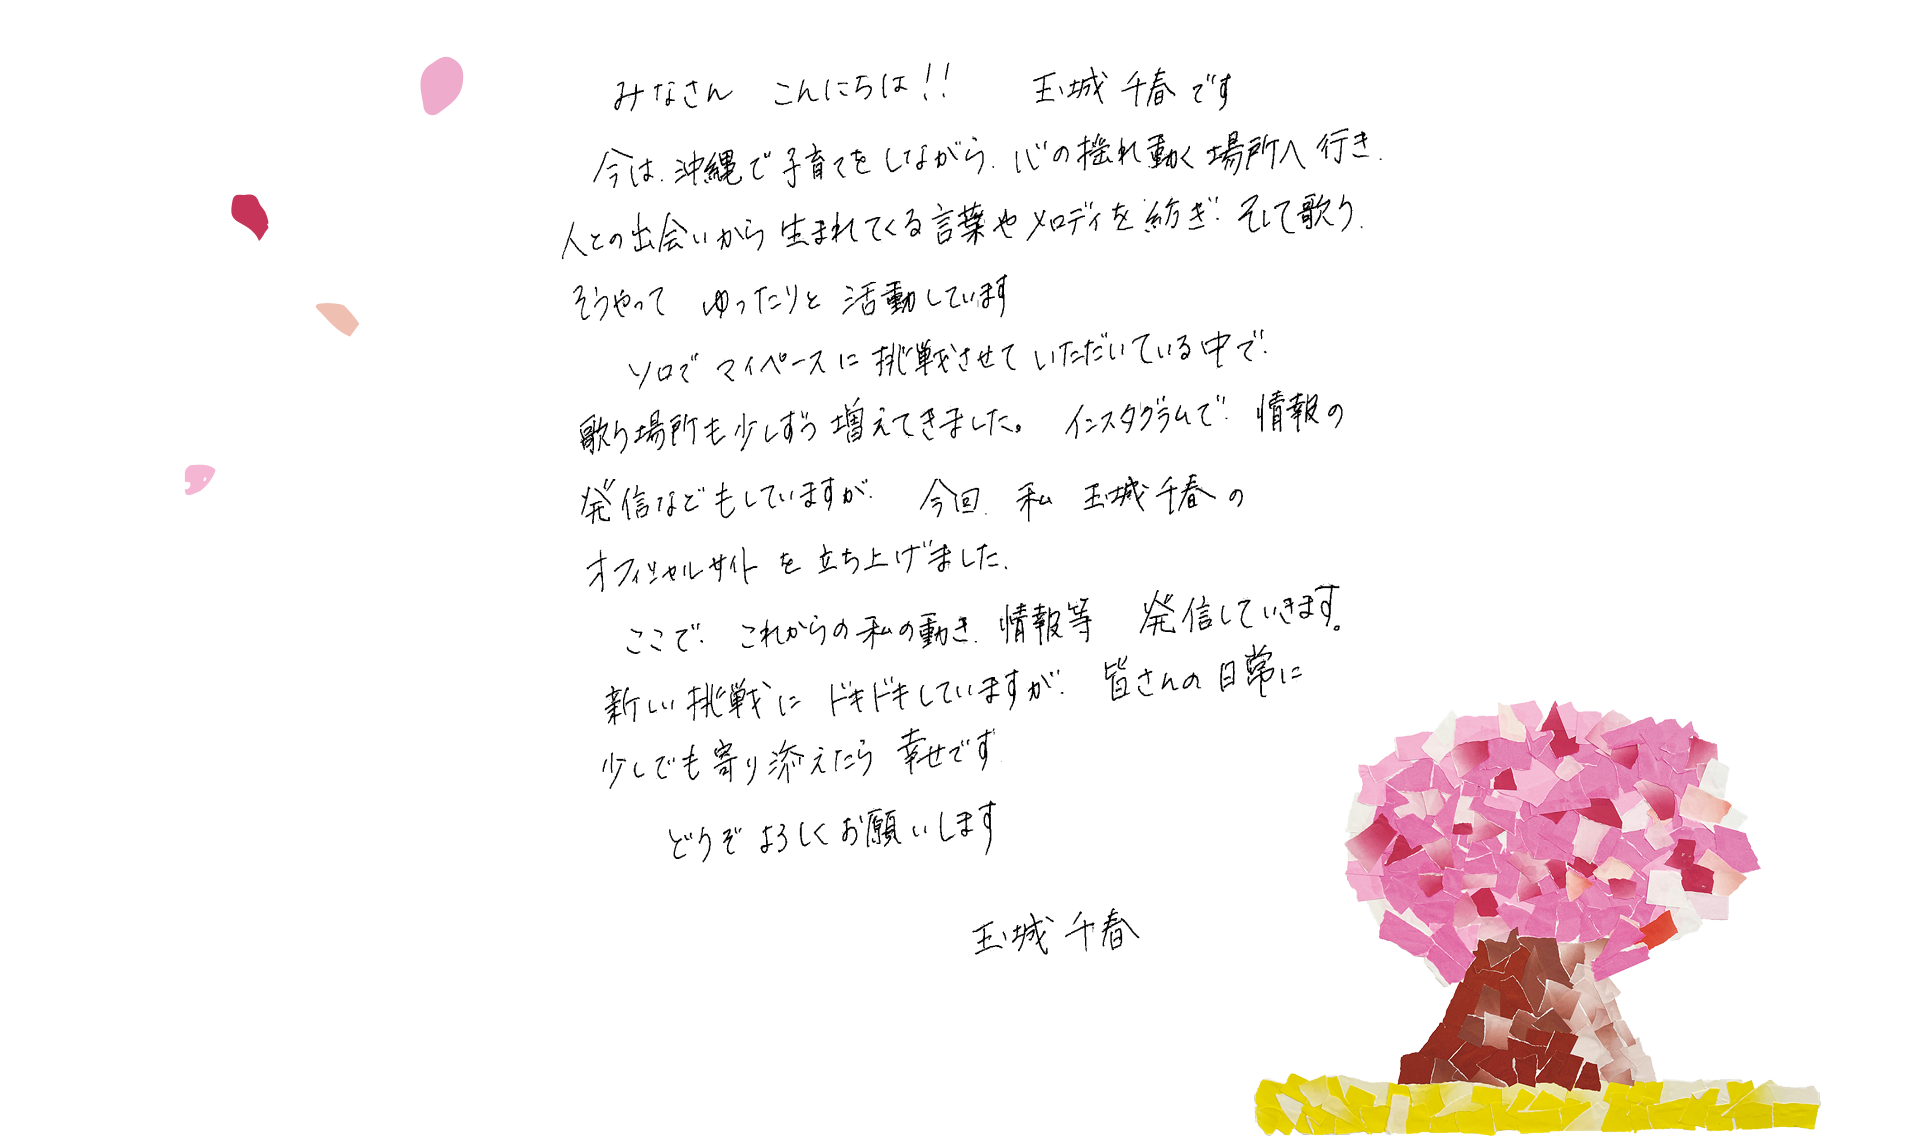 みなさん こんにちは!! 玉城 千春です
今は、沖縄で子育てをしながら、心の揺れ動く場所へ行き、
人との出会いから生まれてくる言葉やメロディを紡ぎ、そして歌う、
そうやって ゆったりと 活動しています
ソロで マイペースに 挑戦させて いただいている中で、
歌う場所も少しずつ増えてきました。 インスタグラムで、情報の
発信などもしていますが、 今回、私 玉城千春の
オフィシャルサイト を 立ち上げました、
ここで、 これからの私の動き、情報等 発信していきます。
新しい挑戦に ドキドキしていますが、 皆さんの日常に
少しでも寄り添えたら 幸せです
どうぞ よろしくお願いします
玉城 千春